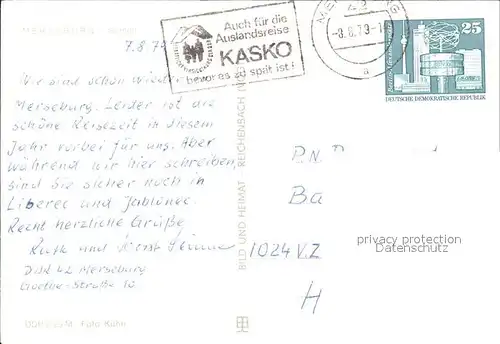 MERSEBURG
7.8.79
Wir sind schon wieder
Merseburg. Leider ist die
schöne Reisezeit in diesem
Jahr vorbei für uns. Aber
während wir hier schreiben,
sind Sie sicher noch in
Liberec und Jablonec.
Recht herzliche Grüße
Ruth und Horst
DDR 42 Merseburg
Goethe-Straße 10
Foto Kühn
BILD UND HEIMAT REICHENBACH
Auch für die
Auslandsreise
KASKO
bevor es zu spät ist!
42
-8.8.79-
a
25
DEUTSCHE DEMOKRATISCHE REPUBLIK
Ba
1024 V.Z
H
privacy protection
Datenschutz